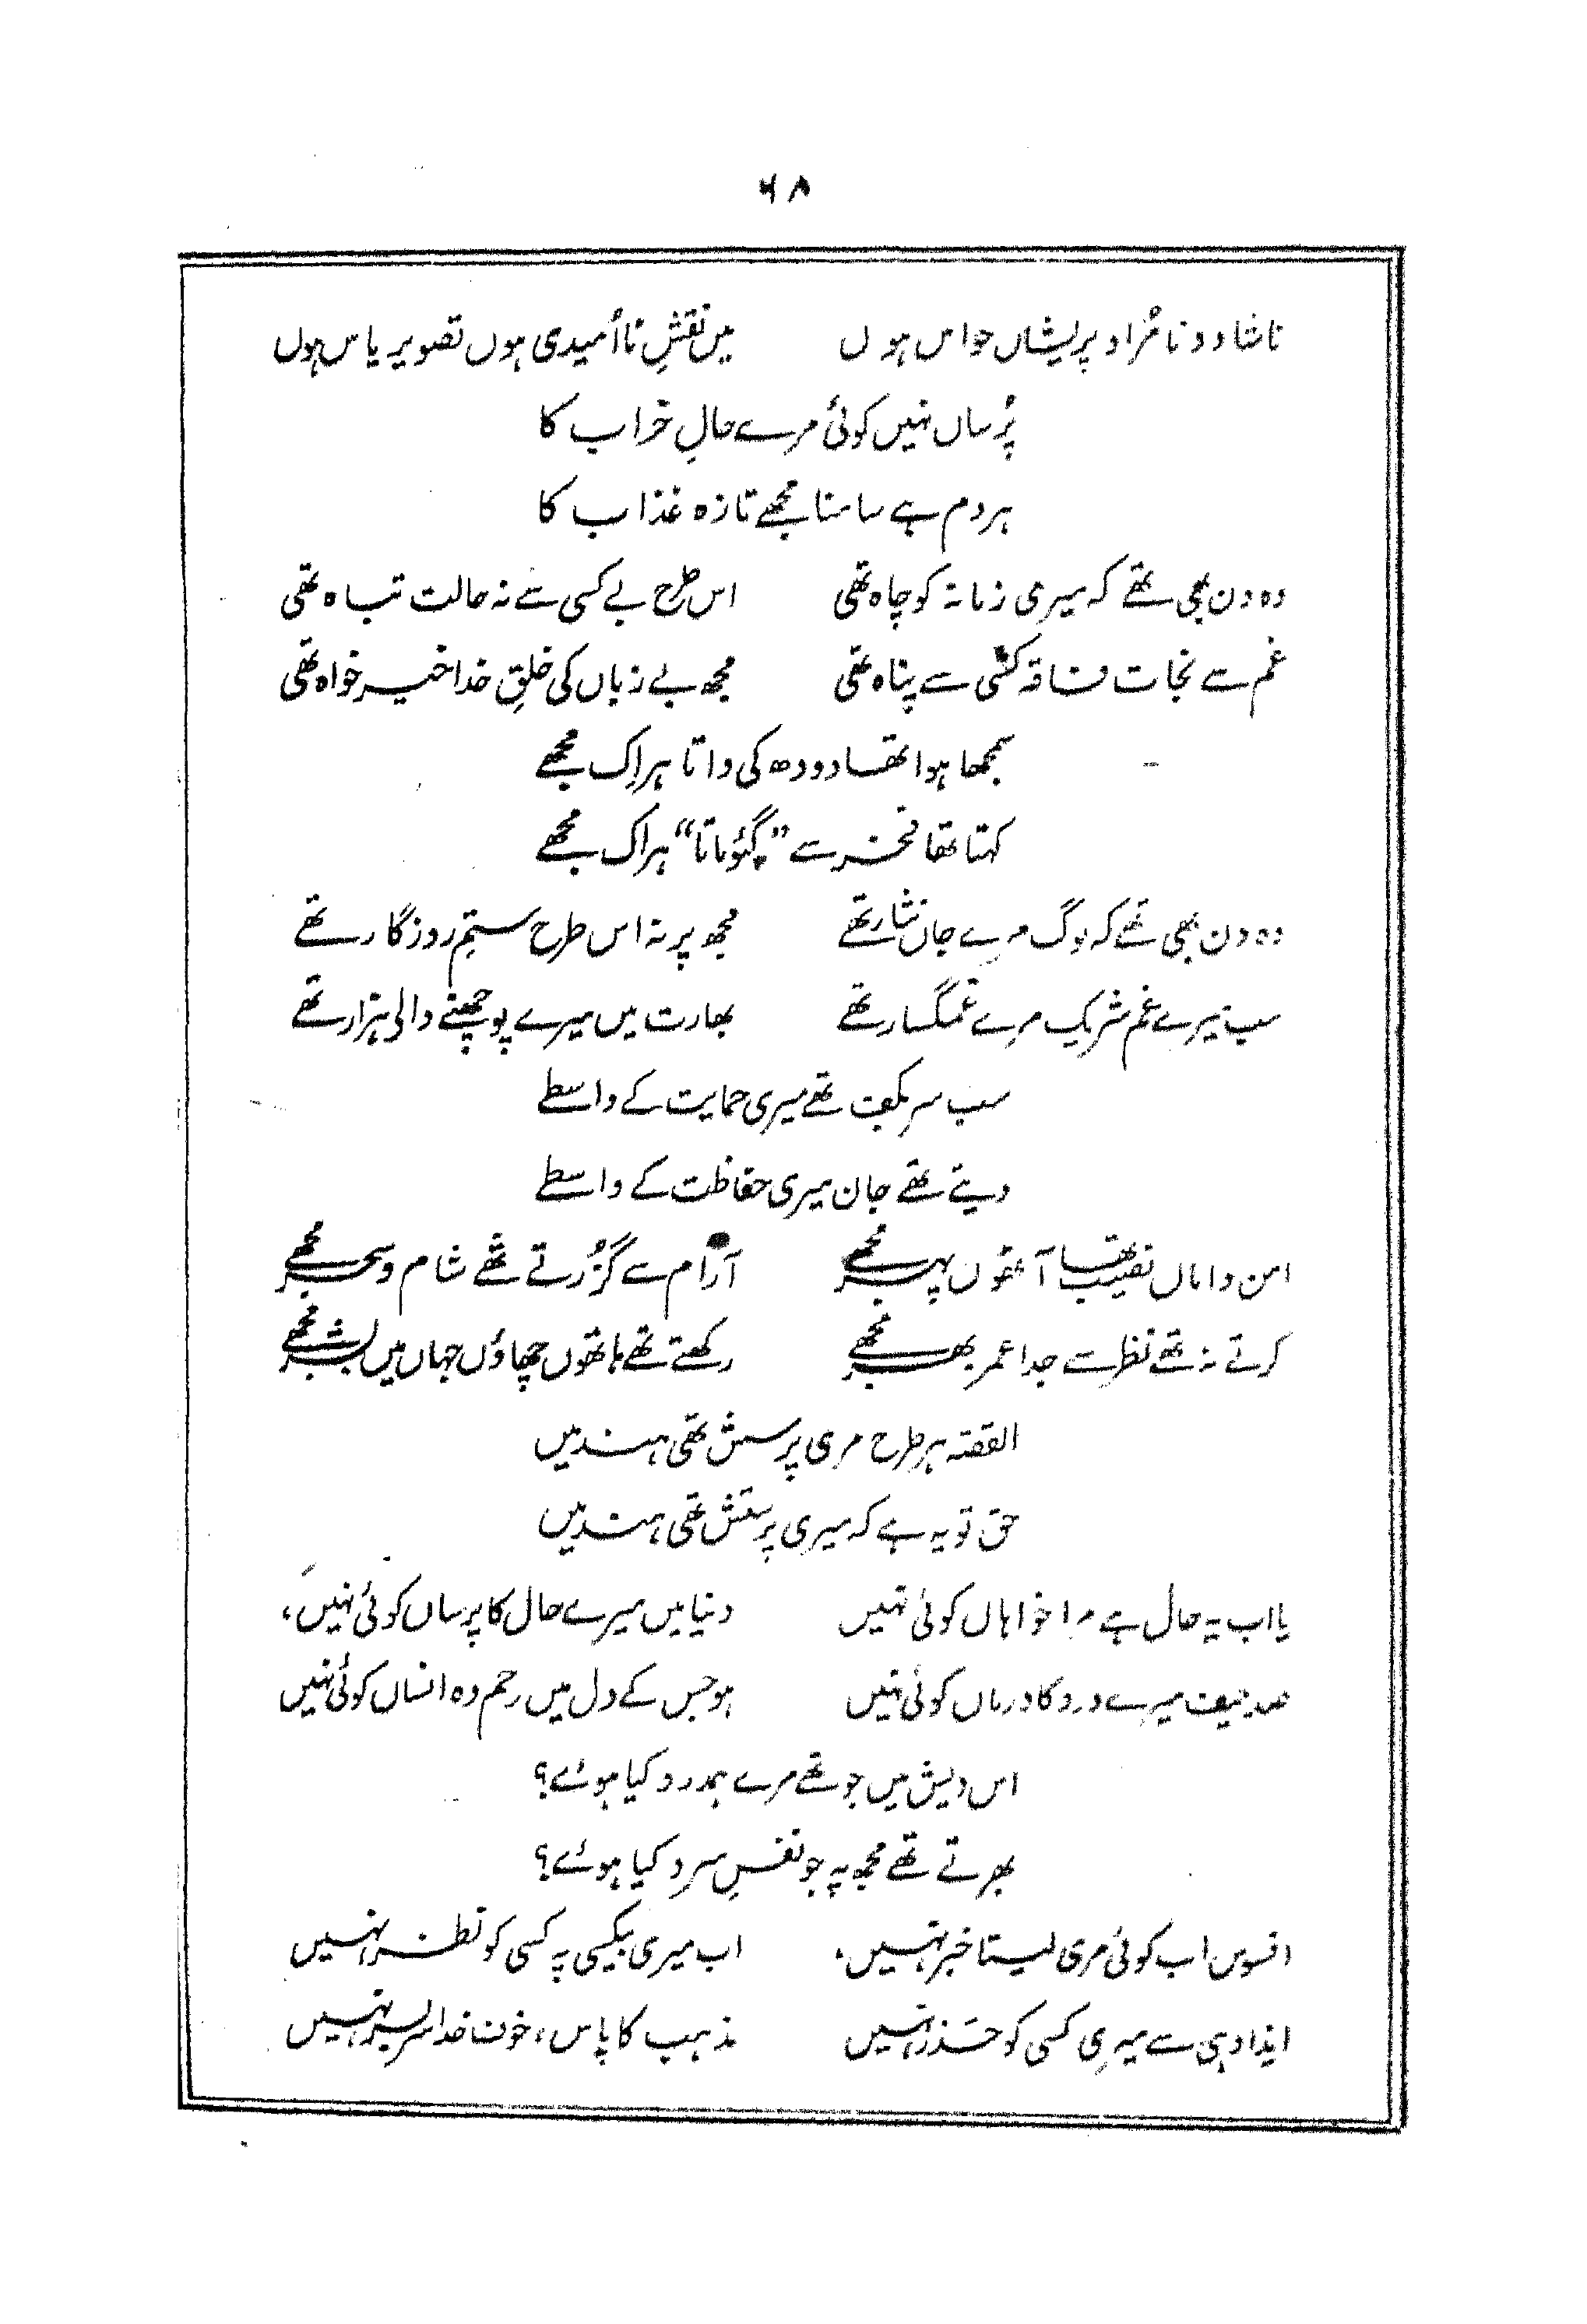 ۶۸
ناشاد و نامُراد پریشاں حواس ہوں میں نقشِ نا اُمیدی ہوں تصویر یاس ہوں
پُرساں نہیں کوئی مرے حالِ خراب کا
ہر دم ہے سامنا مجھے تازہ عذاب کا
وہ دن بھی تھے کہ میری زمانہ کو چاہ تھی اس طرح بے کسی سے نہ حالت تباہ تھی
غم سے نجات فاقہ کشی سے پناہ تھی مجھ بے زباں کی خلقِ خدا خیر خواہ تھی
سمجھا ہوا تھا دودھ کی داتا ہر اِک مجھے
کہتا تھا فخر سے ”گئو ماتا“ ہر اک مجھے
وہ دن بھی تھے کہ لوگ مرے جاں نثار تھے مجھ پر نہ اس طرح ستمِ روزگار تھے
سب میرے غم شریک مرے غمگسار تھے بھارت میں میرے پوچھنے والی ہزار تھے
سب سر بکف تھے میری حمایت کے واسطے
دیتے تھے جان میری حفاظت کے واسطے
امن و اماں نصیب تھا آٹھوں پہر مجھے آرام سے گزُرتے تھے شام و سحر مجھے
کرتے نہ تھے نظر سے جدا عمر بھر مجھے رکھتے تھے ہاتھوں چھاؤں جہاں میں بشر مجھے
القصّہ ہر طرح مری پرسش تھی ہند میں
حق تو یہ ہے کہ میری پرستش تھی ہند میں
یا اب یہ حال ہے مرا خواہاں کوئی نہیں دنیا میں میرے حال کا پرساں کوئی نہیں،
صد حیف میرے درد کا درماں کوئی نہیں ہو جس کے دل میں رحم وہ انساں کوئی نہیں
اس دیش میں جو تھے مرے ہمدرد کیا ہوئے؟
بھرتے تھے مجھ پہ جو نفسِ سرد کیا ہوئے؟
افسوس اب کوئی مری لیتا خبر نہیں، اب میری بیکسی پہ کسی کو نظر نہیں
ایذا دہی سے میری کسی کو حذر نہیں مذہب کا پاس، خوف خدا سر بسر نہیں